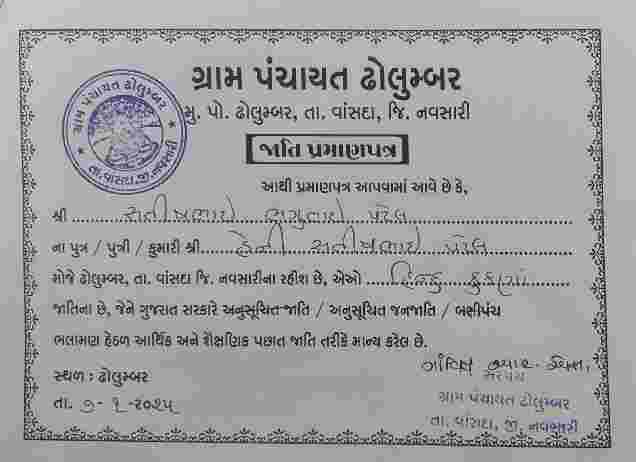 ગ્રામ પંચાયત ઢોલુમ્બર
મુ. પો. ઢોલુમ્બર, તા. વાંસદા, જિ. નવસારી
ગ્રામ પંચાયત ઢોલુમ્બર
તા. વાંસદા, જી. નવસારી
જાતિ પ્રમાણપત્ર
આથી પ્રમાણપત્ર આપવામાં આવે છે કે,
શ્રી સતીષભાઇ ભગુભાઇ પટેલ
ના પુત્ર / પુત્રી / કુમારી શ્રી હેની સતીષભાઇ પટેલ
મોજે ઢોલુમ્બર, તા. વાંસદા જિ. નવસારીના રહીશ છે, એઓ હિન્દુ કુકણા
જાતિના છે, જેને ગુજરાત સરકારે અનુસૂચિત જાતિ / અનુસૂચિત જનજાતિ / બક્ષીપંચ
ભલામણ હેઠળ આર્થિક અને શૈક્ષણિક પછાત જાતિ તરીકે માન્ય કરેલ છે.
સ્થળ : ઢોલુમ્બર
તા. ૭-૧-૨૦૨૫
સરપંચ
ગ્રામ પંચાયત ઢોલુમ્બર
તા. વાંસદા, જી. નવસારી